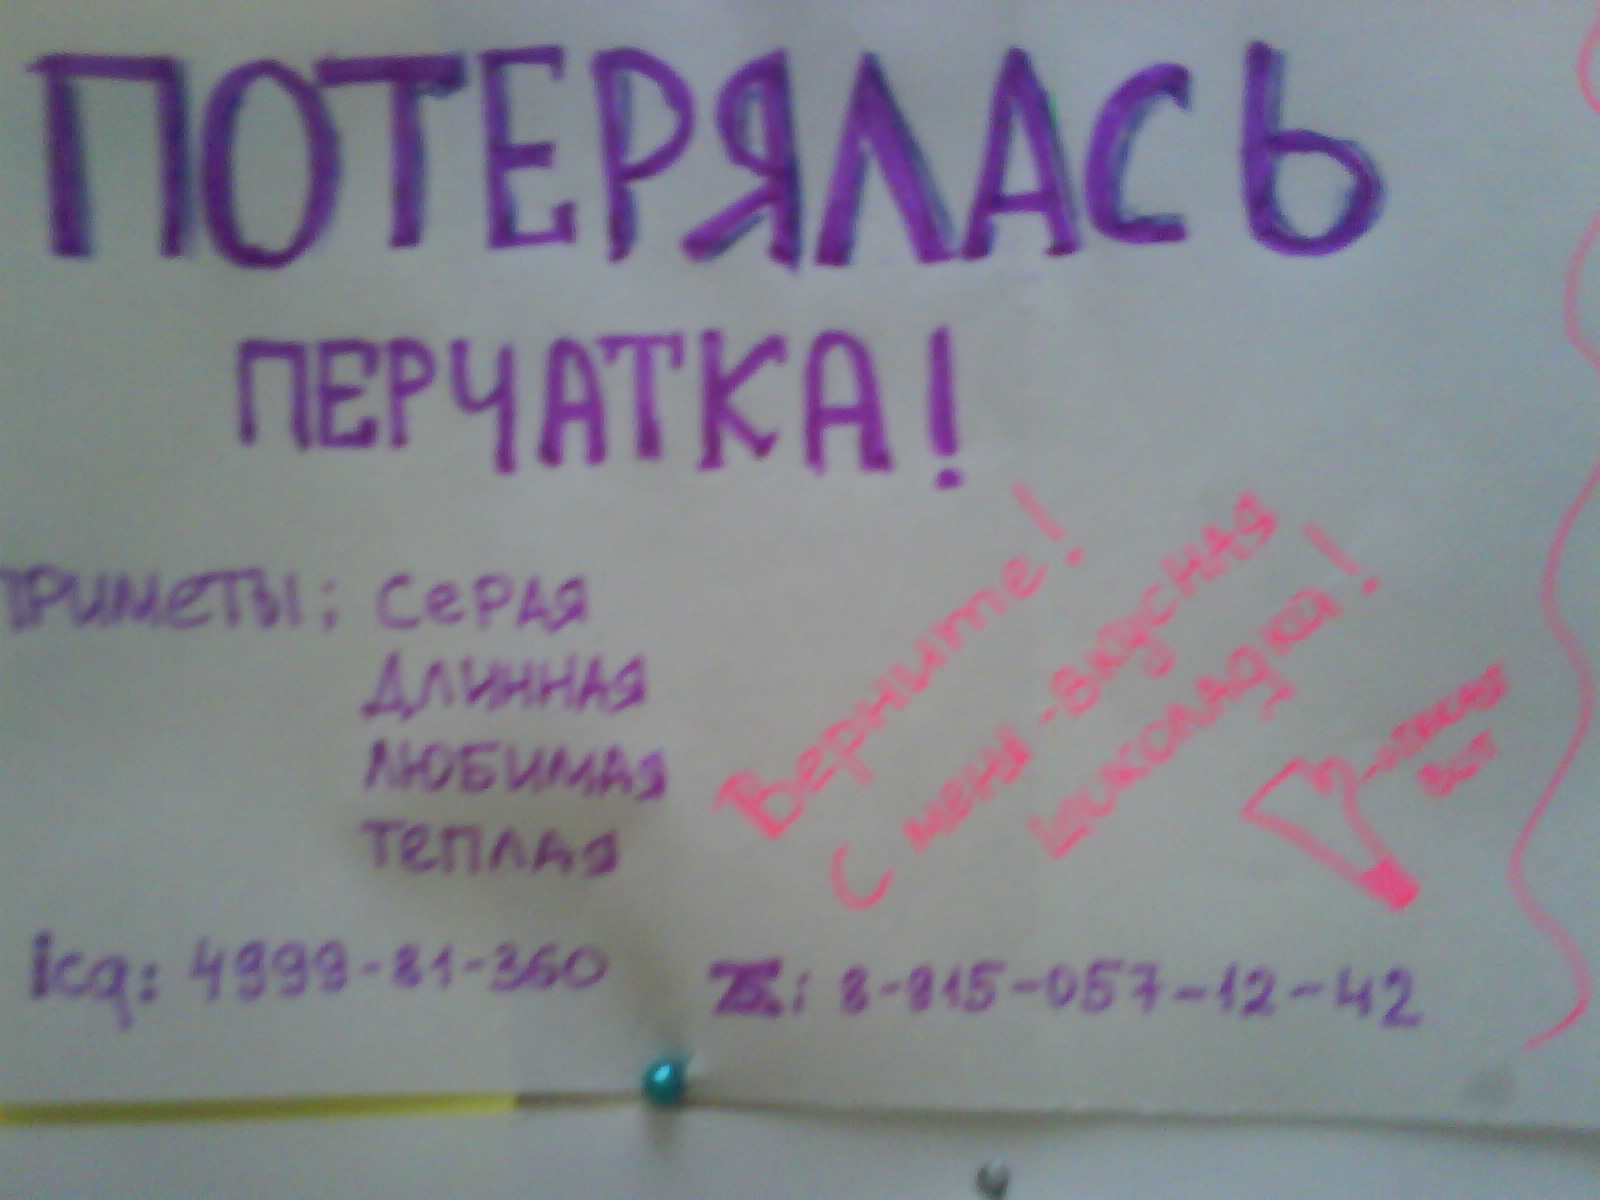 ПОТЕРЯЛАСЬ
ПЕРЧАТКА!
ПРИМЕТЫ: СеРАЯ
ДЛИННАЯ
ЛЮБИМАЯ
ТеПЛАЯ
Верните!
С меня - вкусная
шоколадка!
icq: 4999-81-360
8-915-057-12-42